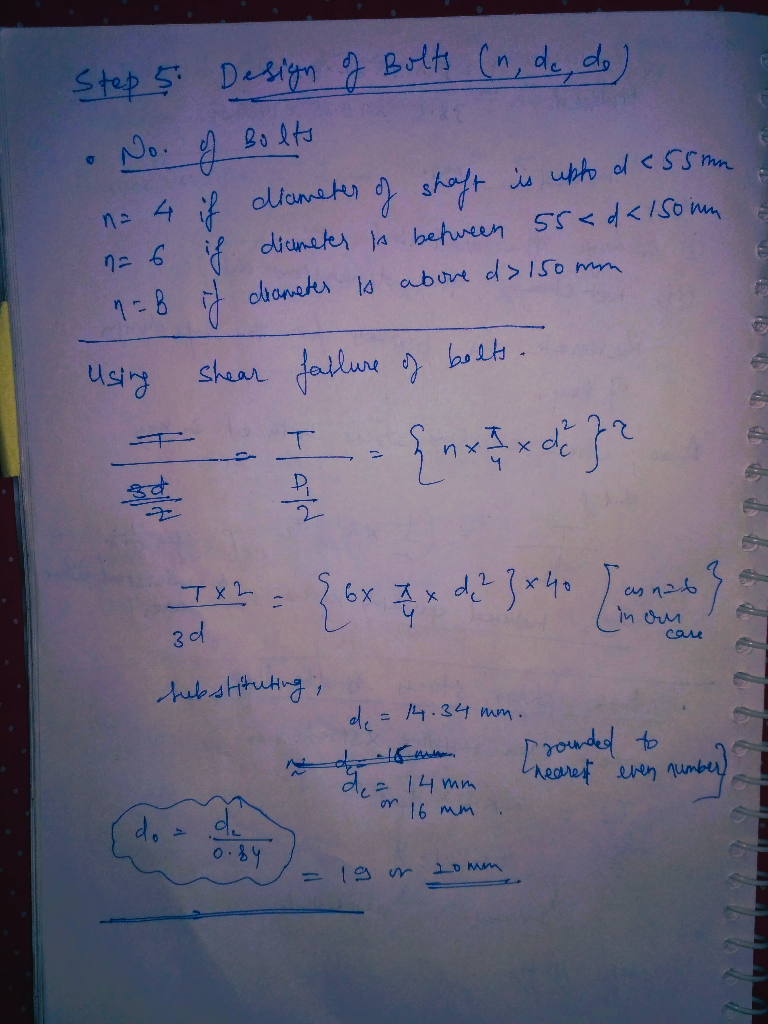 Step 5: Design of Bolts (n, dc, do)
• No. of Bolts
n = 4 if diameter of shaft is upto d < 55 mm
n = 6 if diameter is between 55 < d < 150 mm
n = 8 if diameter is above d > 150 mm
Using shear failure of bolts.
T / (3d/2) = T / (D1/2) = { n × π/4 × dc² } τ
T × 2 / 3d = { 6 × π/4 × dc² } × 40 [ as n = 6 in our case }
substituting,
dc = 14.34 mm.
≈ dc = 15 mm
dc = 14 mm or 16 mm. [rounded to nearest even number]
do = dc / 0.84 = 19 or 20 mm